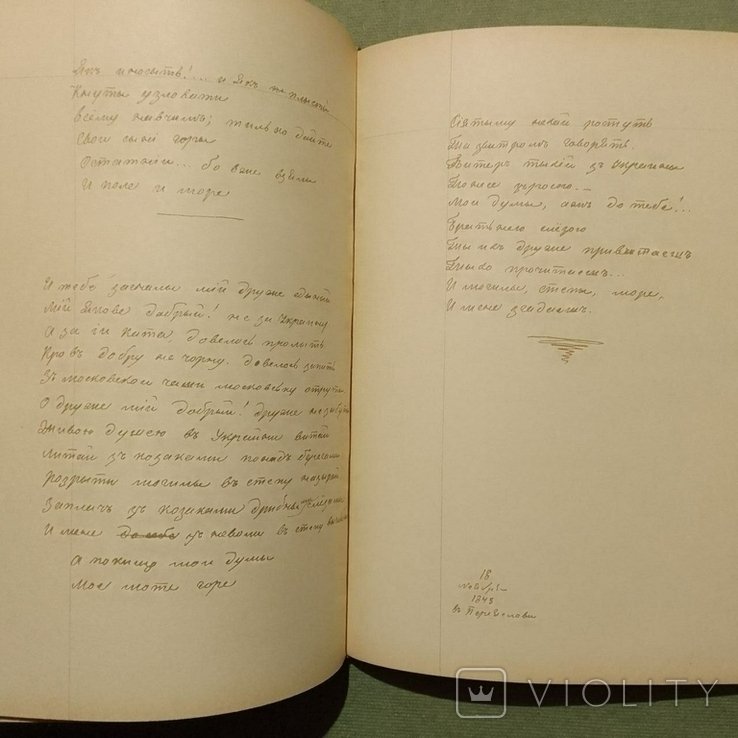 Якъ и носыть!... и Якъ
Кнуты узловати
Всему навчимъ; тильки дайте
Свои сыни горы
Остатніи... бо вже взялы
И поле и море
И тебе загналы мій друже єдыный
Мій Якове добрый! не за Украину
А за іи ката, довелось пролыть
Кровъ добру не чорну. довелось запыть
Зъ московскои чаши московську отруту
О друже мій добрый! друже незабутый
Живою душею въ Украйни витай
Литай зъ козаками понадъ берегами
розрыти могилы въ степу назырай
Заплачъ зъ козаками дрибными слёзами
И мене зъ неволи въ степу выглядай
А покищо мои думы
Мое люте горе
Сіятыму нехай ростуть
Та зъ витромъ говорять.
Витеръ тыхій зъ Украини
Понесе зъ росою...
Мои думы, ажъ до тебе!...
Братнею слёзою
Ты ихъ друже привитаешъ
Тыхо прочитаешъ...
И могилы, степы, море,
И мене згадаешъ.
18
Ноября
1845
въ Переяслави
VIOLITY